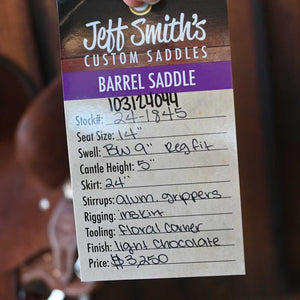 Jeff Smith's
CUSTOM SADDLES
BARREL SADDLE
103124044
Stock#: 24-1845
Seat Size: 14"
Swell: BW 9" Reg fit
Cantle Height: 5"
Skirt: 24"
Stirrups: alum. grippers
Rigging: inskirt
Tooling: floral corner
Finish: light chocolate
Price: $3,250